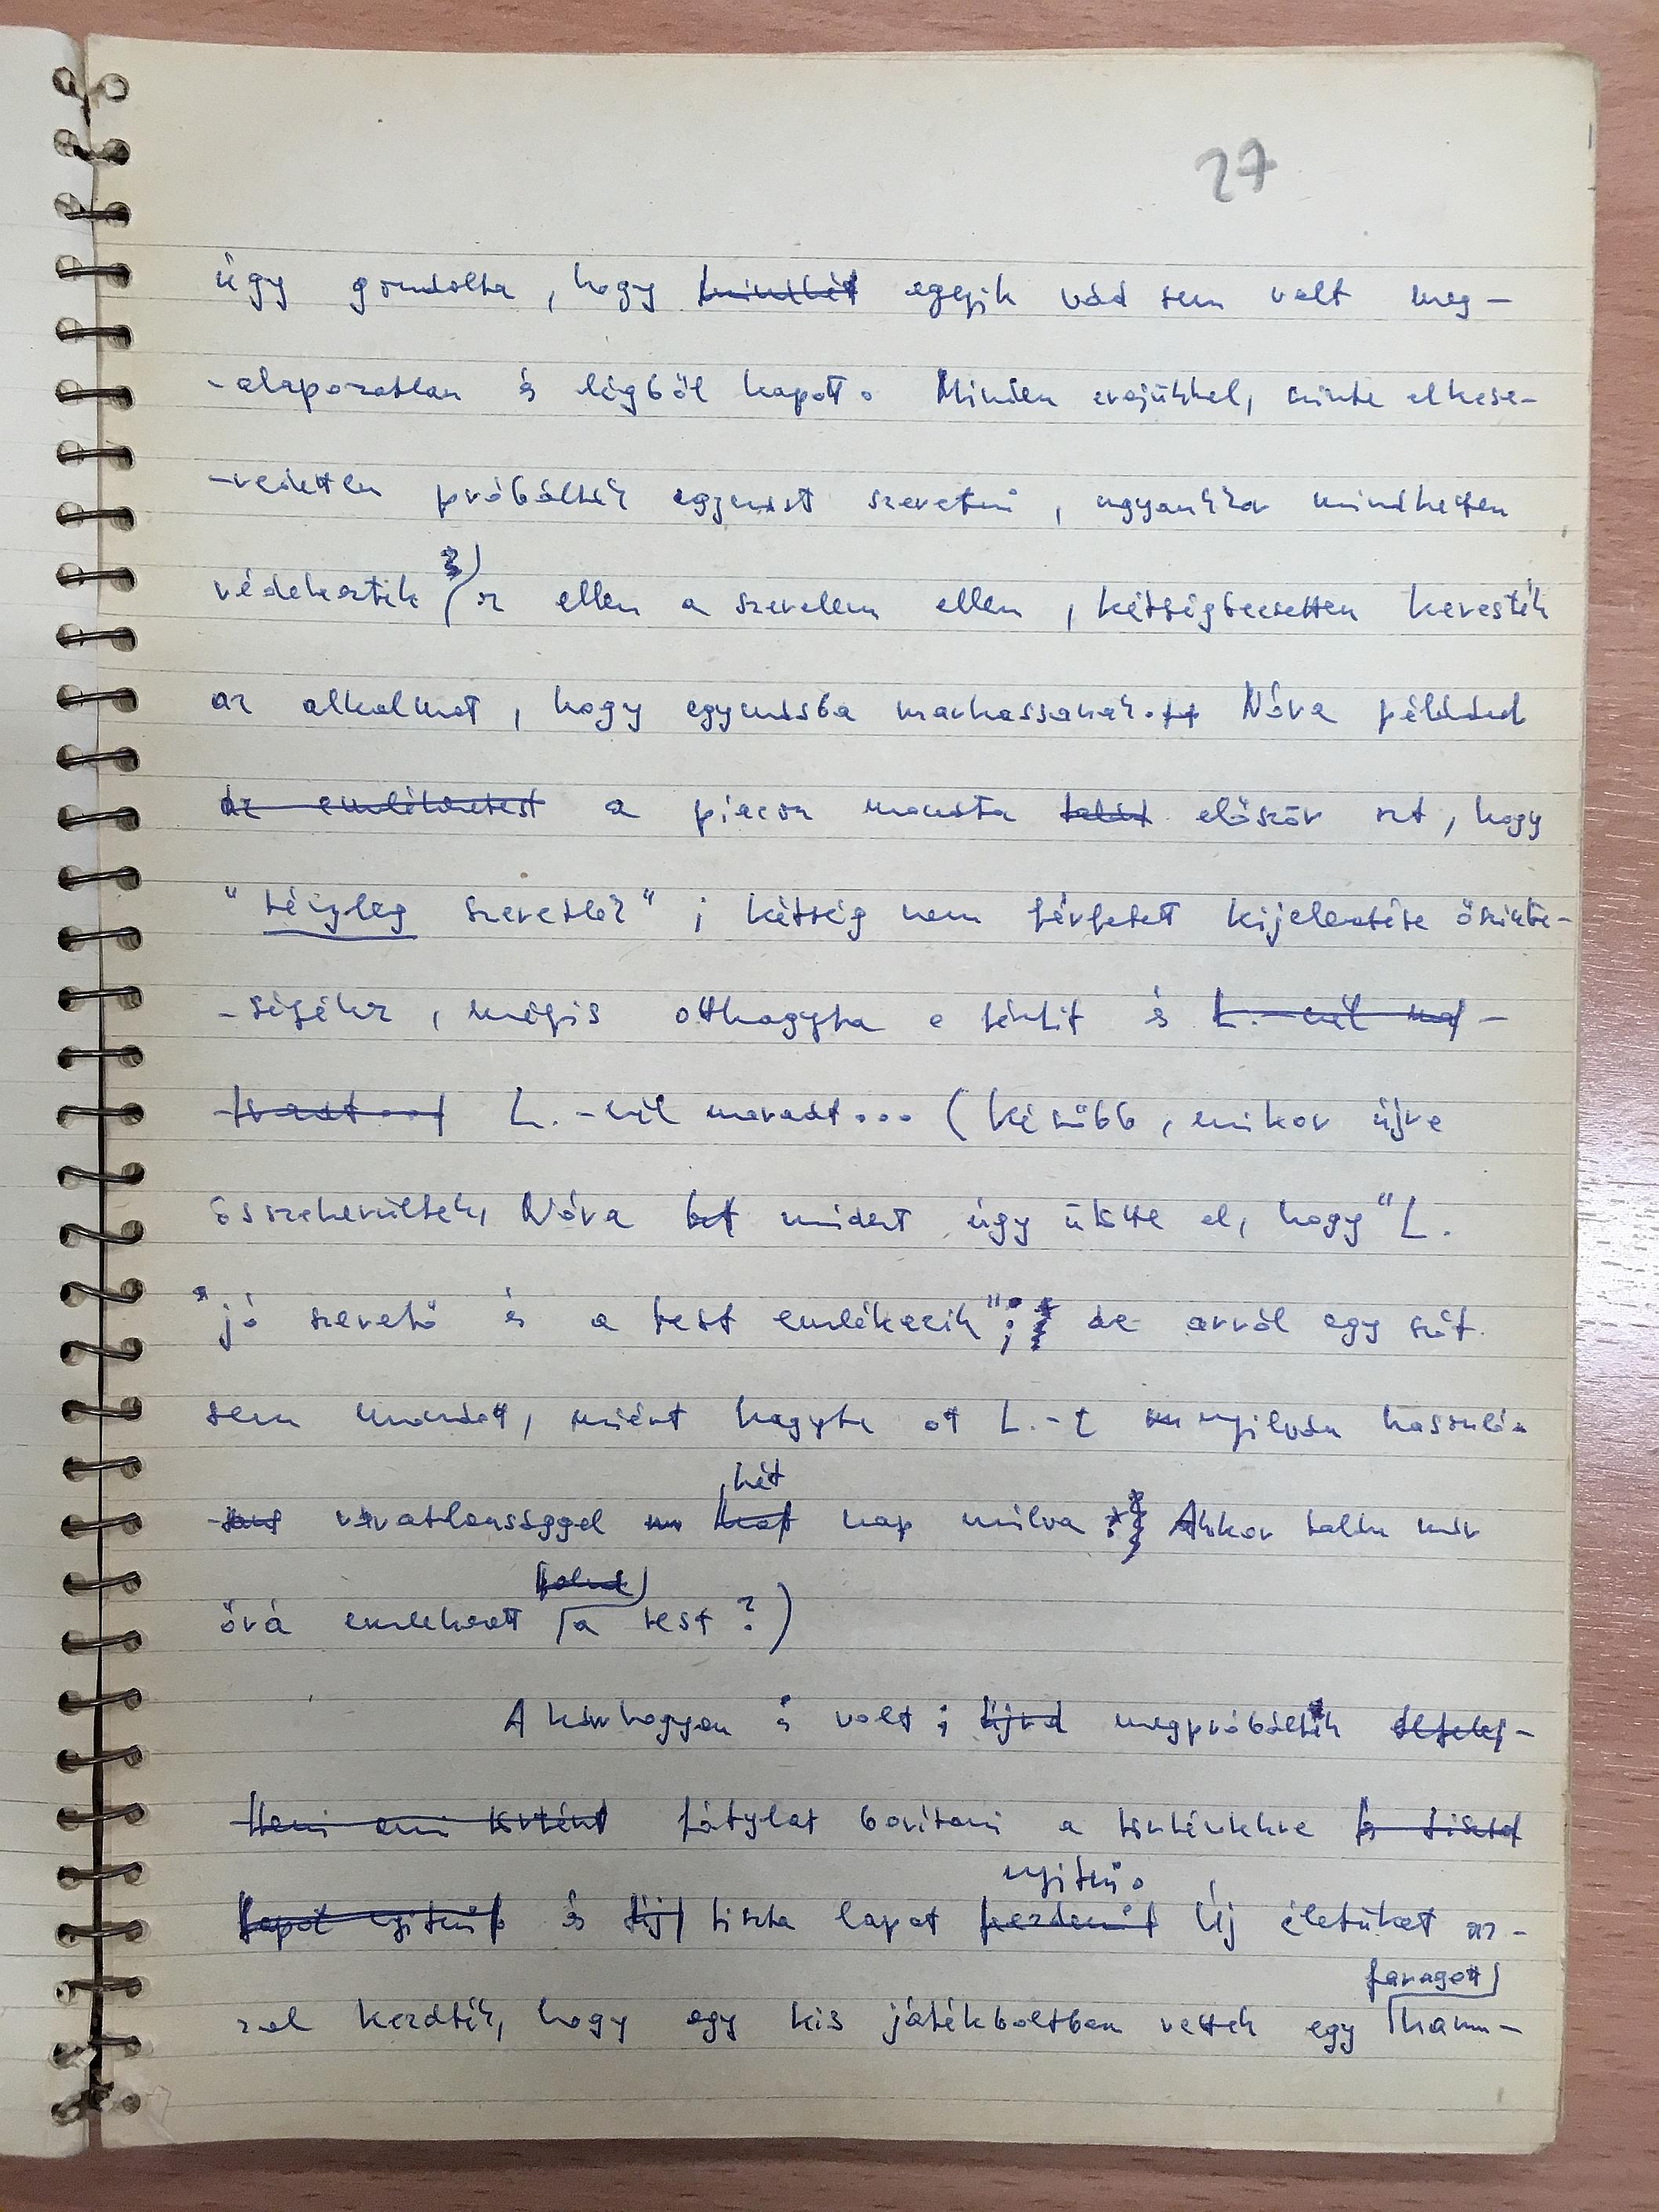 27
úgy gondolta, hogy mindkét egyik vád sem volt meg-
-alapozatlan és légből kapott. Minden erejükkel, szinte elkese-
-redetten próbálták egymást szeretni, ugyanakkor mindketten
védekeztek ez ellen a szerelem ellen, kétségbeesetten keresték
az alkalmat, hogy egymásba marhassanak. Nóra például
az a piacon mondta először azt, hogy
"tényleg szeretlek"; kétség nem férhetett kijelentése őszinte-
-ségéhez, mégis otthagyta a férfit és L.-nél ma-
-radt... L.-nél maradt... (később, mikor újra
összekerültek, Nóra mindezt úgy ütötte el, hogy "L.
"jó szerető és a test emlékezik"; de arról egy szót
sem mondott, miért hagyta ott L.-t nyilván hasonló
váratlansággal hét nap múlva. Akkor talán már
őrá emlékezett a test?)
Akárhogyan is volt; újra megpróbálták elfelej-
-teni ami történt fátylat borítani a történtekre és tiszta
lapot nyitni. és új tiszta lapot kezdeni nyitni. Új életüket az-
zal kezdték, hogy egy kis játékboltban vettek egy faragott ham-